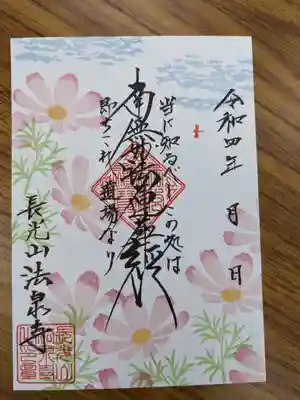 令和四年 月 日
当に知るべしこの処は
南無妙法蓮華経
即ちこれ道場なり
長光山法泉寺